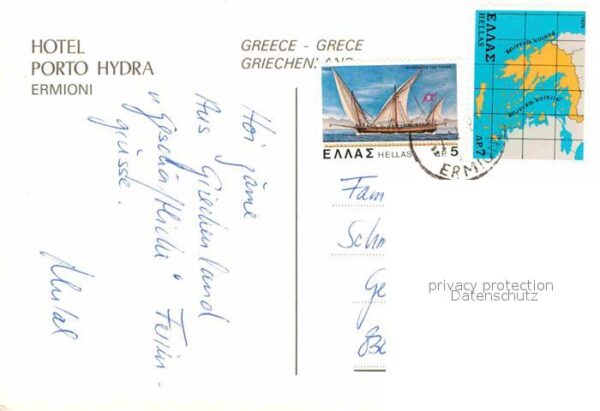 HOTEL
PORTO HYDRA
ERMIONI
GREECE - GRECE
GRIECHENLAND
ΕΛΛΑΣ HELLAS ΔΡ 5
ΕΛΛΑΣ
HELLAS
ΔΡ 7
ERMIO
Hoi zäme
Aus Griechenland
Ferien-
grüsse.
Fam
Schm
Ge
Be
privacy protection
Datenschutz